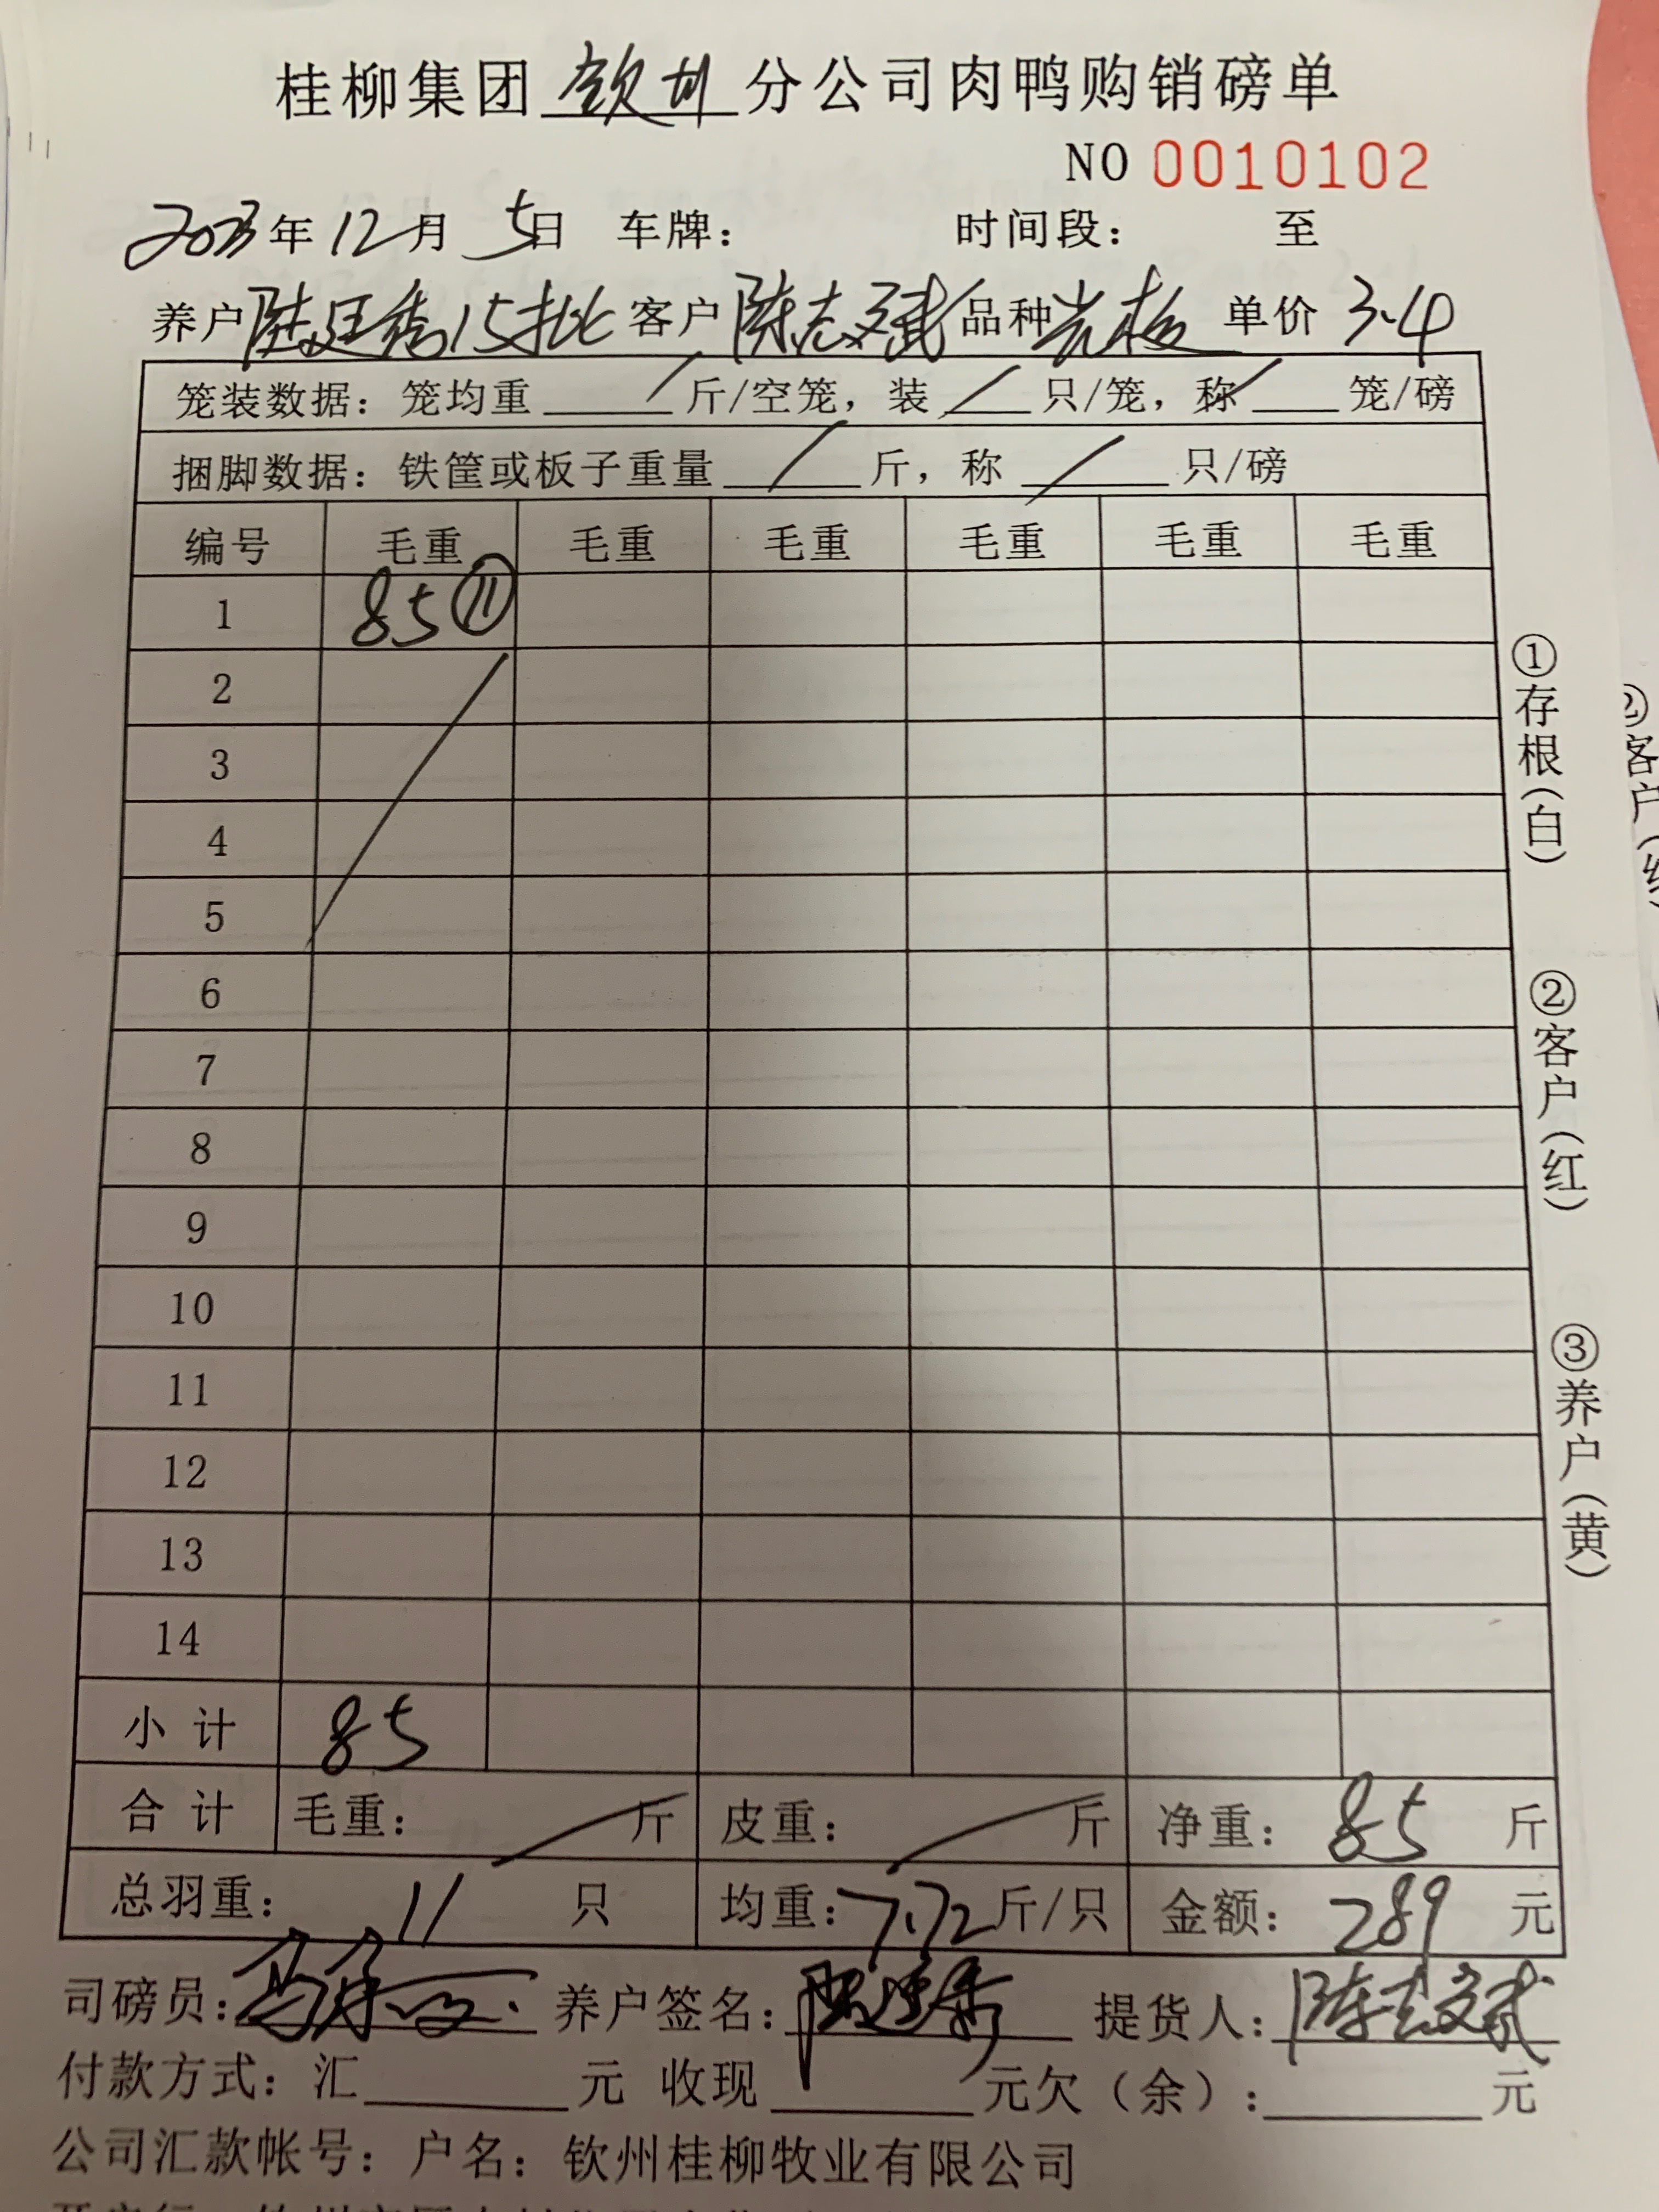 桂柳集团 钦州 分公司肉鸭购销磅单
NO 0010102
2023年12月5日 车牌： 时间段： 至
养户 陆廷秀15批 客户 陈志斌 品种 单价 3.4
笼装数据：笼均重 / 斤/空笼，装 / 只/笼，称 / 笼/磅
捆脚数据：铁筐或板子重量 / 斤，称 / 只/磅
编号 毛重 毛重 毛重 毛重 毛重 毛重
1 85 ⑪
2
3
4
5
6
7
8
9
10
11
12
13
14
小计 85
合计 毛重： / 斤 皮重： / 斤 净重：85 斤
总羽重：11 只 均重：7.72 斤/只 金额：289 元
司磅员： 养户签名： 提货人：陈志斌
付款方式：汇 元 收现 元欠（余）： 元
公司汇款帐号：户名：钦州桂柳牧业有限公司
①存根（白）
②客户（红）
③养户（黄）
②客户（红）